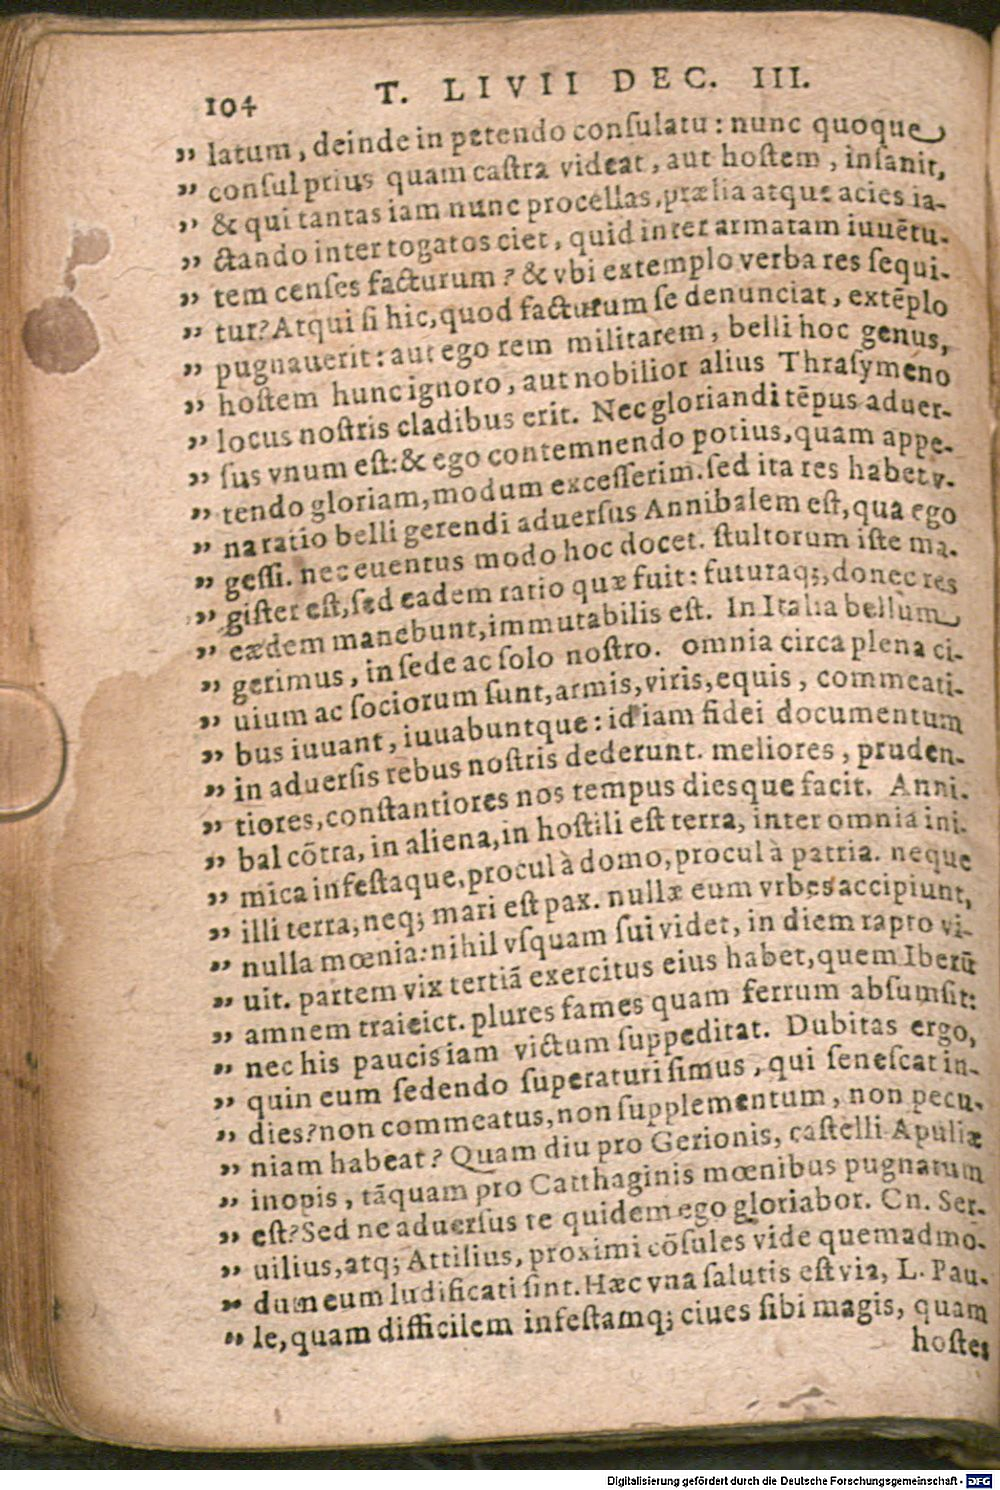 104 T. LIVII DEC. III.
„ latum, deinde in petendo conſulatu: nunc quoque
„ conſul prius quam caſtra videat, aut hoſtem, inſanit,
„ & qui tantas iam nunc procellas, prælia atque acies ia-
„ ctando inter togatos ciet, quid inter armatam iuuētu-
„ tem cenſes facturum? & vbi extemplo verba res ſequi-
„ tur? Atqui ſi hic, quod facturum ſe denunciat, extēplo
„ pugnauerit: aut ego rem militarem, belli hoc genus,
„ hoſtem hunc ignoro, aut nobilior alius Thraſymeno
„ locus noſtris cladibus erit. Nec gloriandi tēpus aduer-
„ ſus vnum eſt: & ego contemnendo potius, quam appe-
„ tendo gloriam, modum exceſſerim. ſed ita res habet v-
„ na ratio belli gerendi aduerſus Annibalem eſt, qua ego
„ geſſi. nec euentus modo hoc docet. ſtultorum iſte ma-
„ giſter eſt, ſed eadem ratio quæ fuit: futuraq;, donec res
„ eædem manebunt, immutabilis eſt. In Italia bellum
„ gerimus, in ſede ac ſolo noſtro. omnia circa plena ci-
„ uium ac ſociorum ſunt, armis, viris, equis, commeati-
„ bus iuuant, iuuabuntque: id iam fidei documentum
„ in aduerſis rebus noſtris dederunt. meliores, pruden-
„ tiores, conſtantiores nos tempus diesque facit. Anni-
„ bal cōtra, in aliena, in hoſtili eſt terra, inter omnia ini-
„ mica infeſtaque, procul à domo, procul à patria. neque
„ illi terra, neq; mari eſt pax. nullæ eum vrbes accipiunt,
„ nulla mœnia: nihil vſquam ſui videt, in diem rapto vi-
„ uit. partem vix tertiā exercitus eius habet, quem Iberū
„ amnem traieict. plures fames quam ferrum abſumſit:
„ nec his paucis iam victum ſuppeditat. Dubitas ergo,
„ quin eum ſedendo ſuperaturi ſimus, qui ſeneſcat in-
„ dies? non commeatus, non ſupplementum, non pecu-
„ niam habeat? Quam diu pro Gerionis, caſtelli Apuliæ
„ inopis, tāquam pro Catthaginis mœnibus pugnatum
„ eſt? Sed ne aduerſus te quidem ego gloriabor. Cn. Ser-
„ uilius, atq; Attilius, proximi cōſules vide quemadmo-
„ dum eum ludificati ſint. Hæc vna ſalutis eſt via, L. Pau-
„ le, quam difficilem infeſtamq; ciues ſibi magis, quam
hoſtes
Digitalisierung gefördert durch die Deutsche Forschungsgemeinschaft - DFG